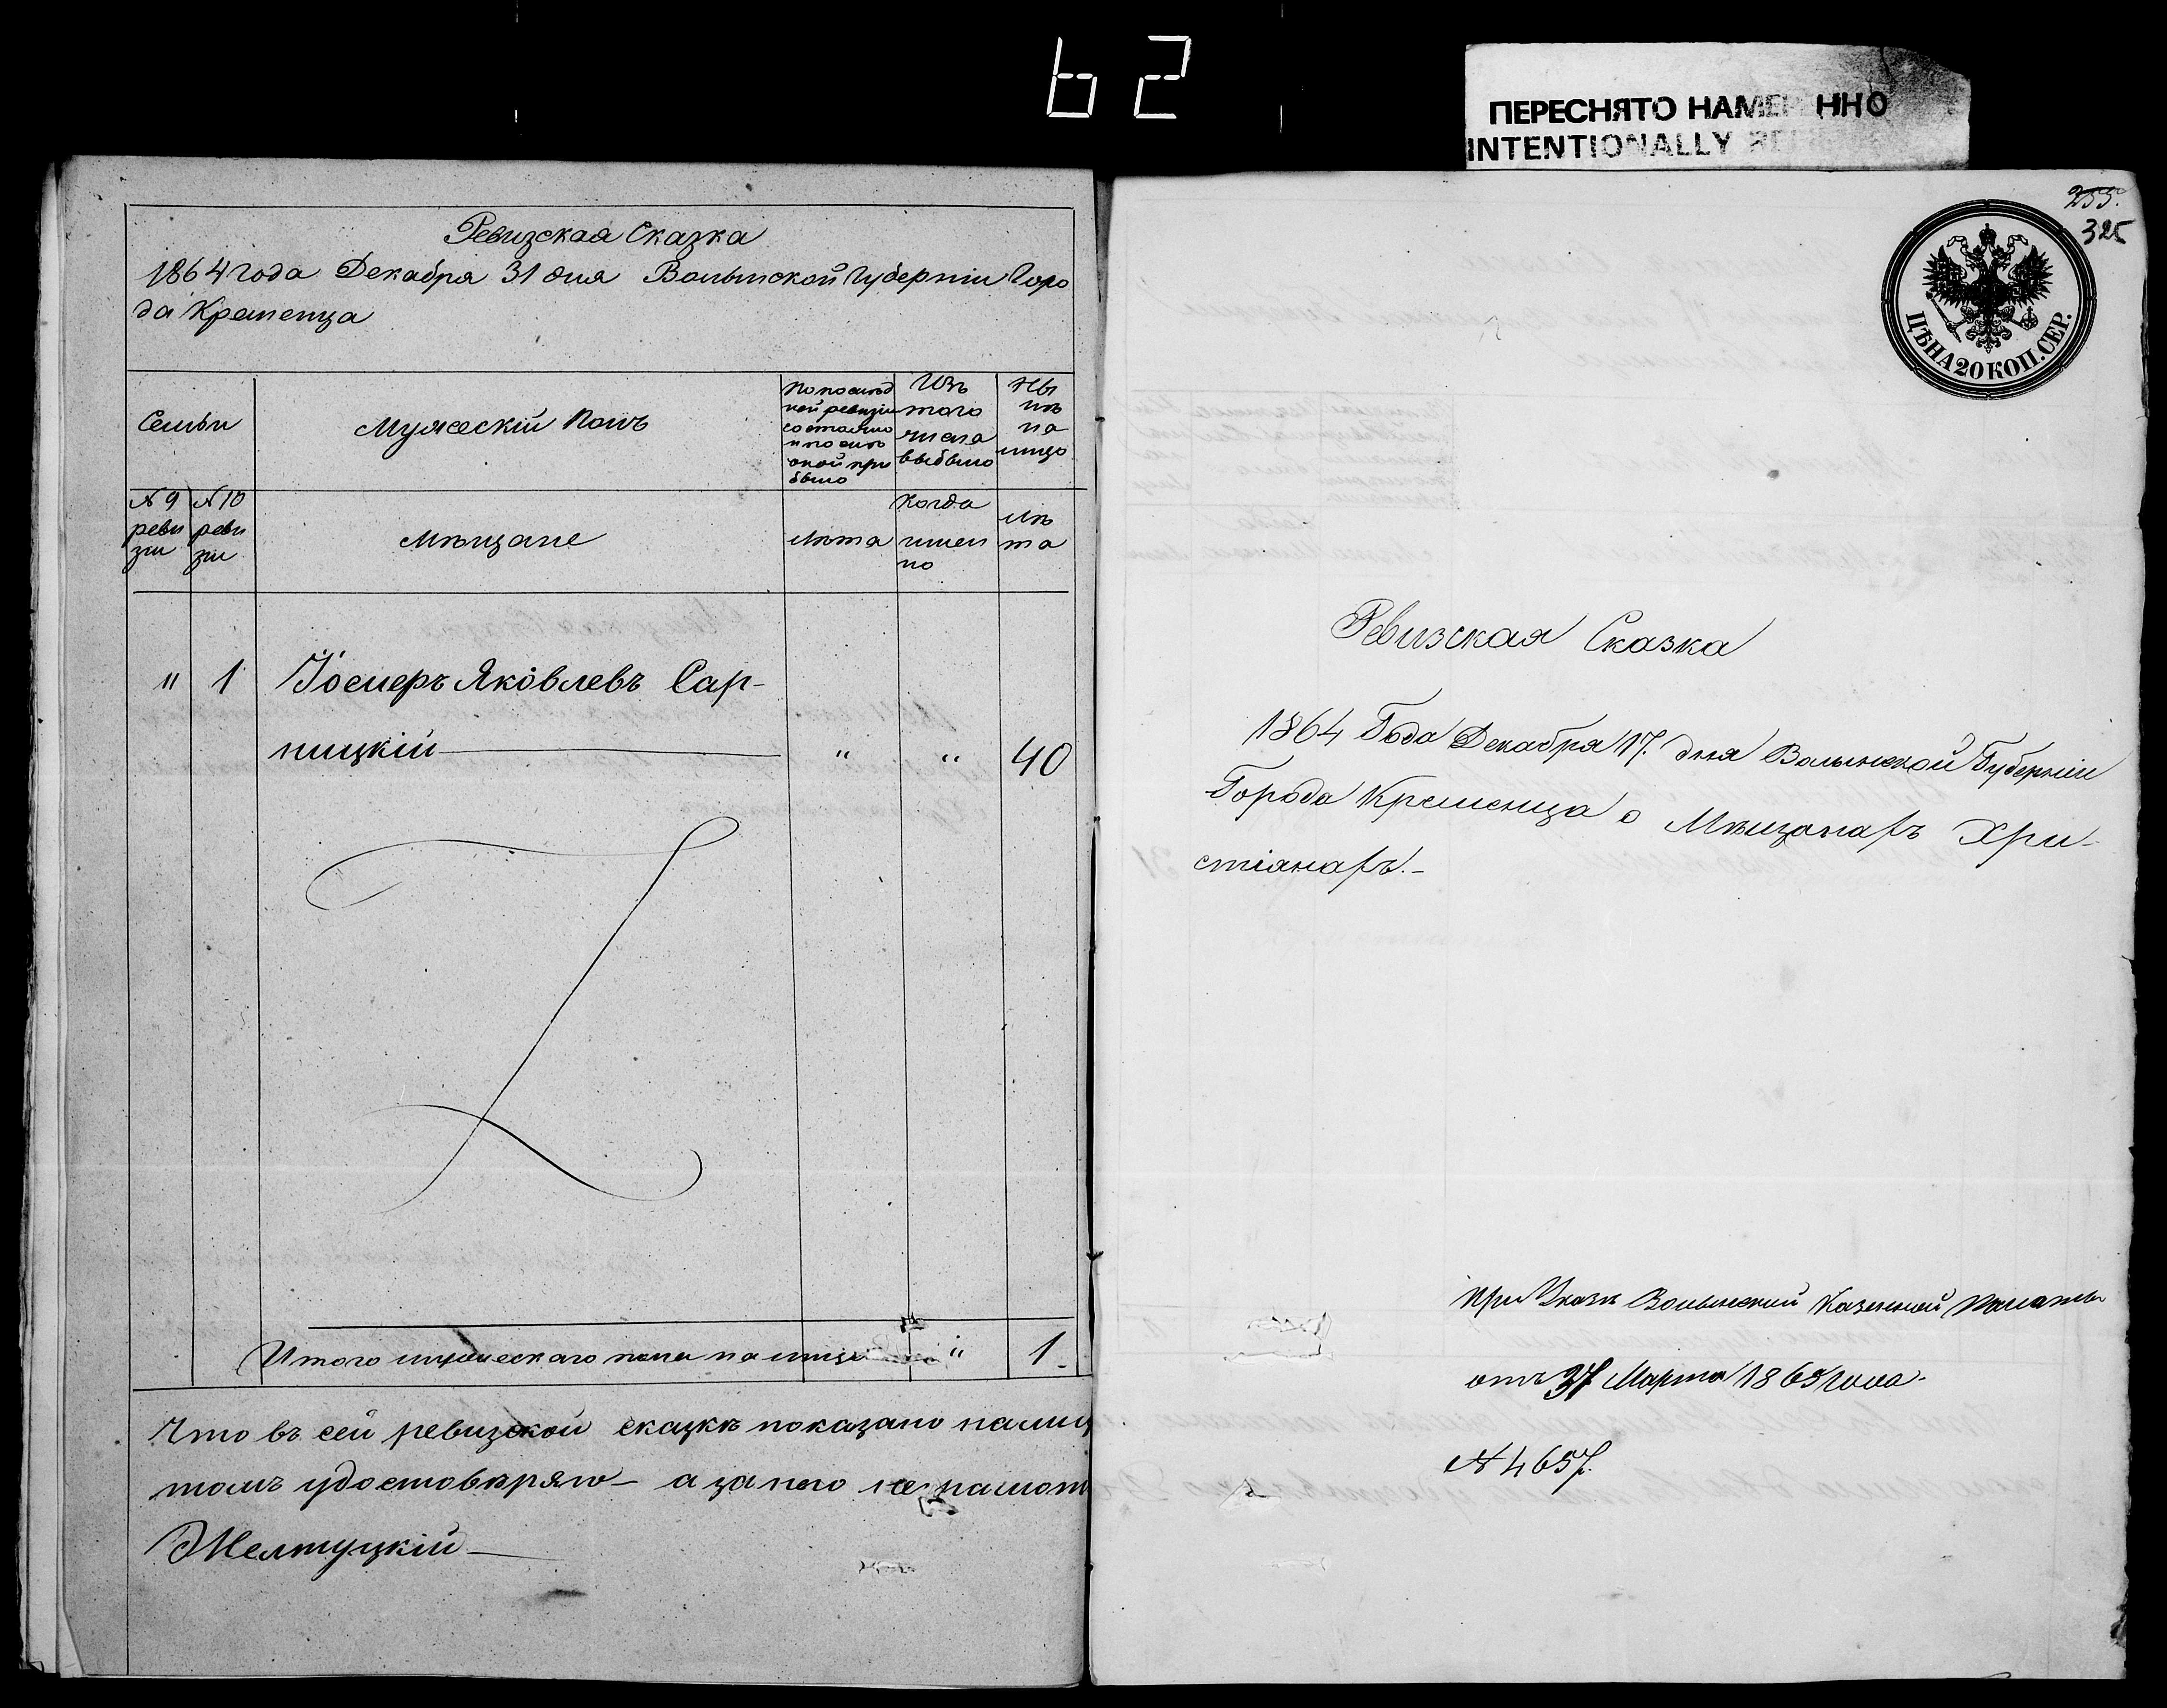 62
ПЕРЕСНЯТО НАМЕР ННО
INTENTIONALLY RE
Ревизская Сказка
1864 года Декабря 31 дня Волынской Губерніи Горо
да Кременца
Семьи
Мужескій Полъ
По послѣд
ней ревизіи
состояло
и послѣ
оной при
было
Изъ
того
числа
выбыло
Ны
нѣ
на
лицо
№ 9
реви
зіи
№ 10
реви
зіи
Мѣщане
Лѣта
Когда
имен
но
Лѣ
та
" 1 Іосиеръ Яковлевъ Сар-
ницкій " " 40
Итого мужескаго пола на лице " 1
Что въ сей ревизской сказкѣ показано налиц
томъ удостовѣряю - а за него неграмот
Желтуцкій
255.
325
ЦѢНА 20 КОП. СЕР.
Ревизская Сказка
1864 Года Декабря 17. дня Волынской Губерніи
Города Кременца о Мѣщанахъ Хри-
стіанахъ.-
При Указѣ Волынской Казенной Палаты
отъ 31 Марта 1865 года.
№ 4657.